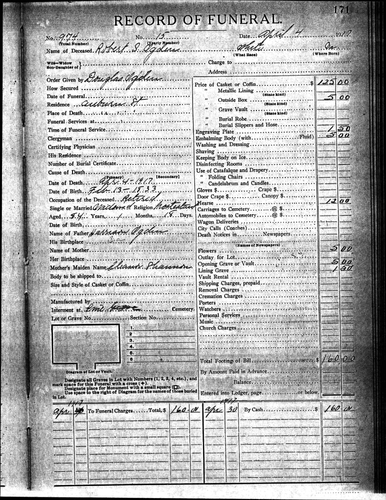 171
RECORD OF FUNERAL.
No. 974 No. 15 Date April 4 19
(Total Number) (Yearly Number)
Name of Deceased Robert S. Ogden White
(What Race) (Where Born)
Wife—Widow
Son-Daughter of Charge to
Address
Order Given by Douglas Ogden
How Secured
Date of Funeral
Residence Auburn
Place of Death
Funeral Services at
Time of Funeral Service
Clergyman
Certifying Physician
His Residence
Number of Burial Certificate
Cause of Death
(Secondary)
Date of Death Apr-4-1917
Date of Birth Feb-13-1833
Occupation of the Deceased Retired
Single or Married Religion
Aged 84 Years, 1 Months, Days
Name of Father Ogden
His Birthplace
Name of Mother
Her Birthplace
Mother's Maiden Name Shannon
Body to be shipped to
Size and Style of Casket or Coffin
Manufactured by
Interment at Cemetery
Lot or Grave No. Section No.
1
2
3
4
5
Diagram of Lot or Vault.
Designate all Graves in Lot with Numbers (1, 2, 3, 4, etc.), and mark space for this Funeral with a cross (+).
Designate place for Monument with a small square
Use space to right of Diagram for the names of those buried in Lot.
Price of Casket or Coffin $ 125 00
" Metallic Lining
(State kind)
" Outside Box 5 00
(State kind)
" Grave Vault
(State kind)
" Burial Robe
" Burial Slippers and Hose
Engraving Plate 1 50
Embalming Body (with Fluid) 5 00
Washing and Dressing
Shaving
Keeping Body on Ice
Disinfecting Rooms
Use of Catafalque and Drapery
" Folding Chairs
" Candelabrum and Candles
Gloves $ Crape $
Door Crape $ Canopy $
Hearse 12 00
Carriages to Cemetery @ $
Automobiles to Cemetery @ $
Wagon Deliveries
City Calls (Coaches)
Death Notices in Newspapers
(Names of Newspapers)
Flowers 5 00
Outlay for Lot
Opening Grave or Vault 5 00
Lining Grave 1 50
Vault Rental
Shipping Charges, prepaid
Removal Charges
Cremation Charges
Porters
Watchers
Personal Services
Music
Church Charges
Total Footing of Bill $ 160 00
By Amount Paid in Advance
Balance
Entered into Ledger, page or below
Apr. To Funeral Charges, Total, $ 160 00 Apr. 30 By Cash $ 160 00